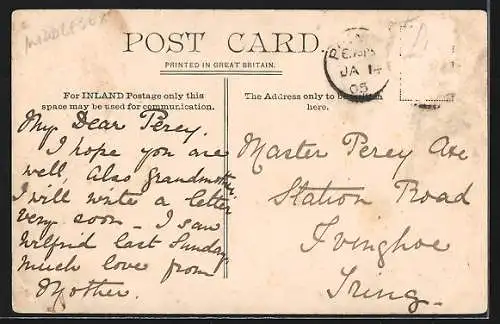 MIDDLESEX
POST CARD.
PRINTED IN GREAT BRITAIN.
For INLAND Postage only this
space may be used for communication.
The Address only to be
here.
JA 14
05
My Dear Percy.
I hope you are
well, also grandmother.
I will write a letter
very soon – I saw
Wilfrid last Sunday
much love from
Mother.
Master Percy Axe
Station Road
Ivinghoe
Tring.